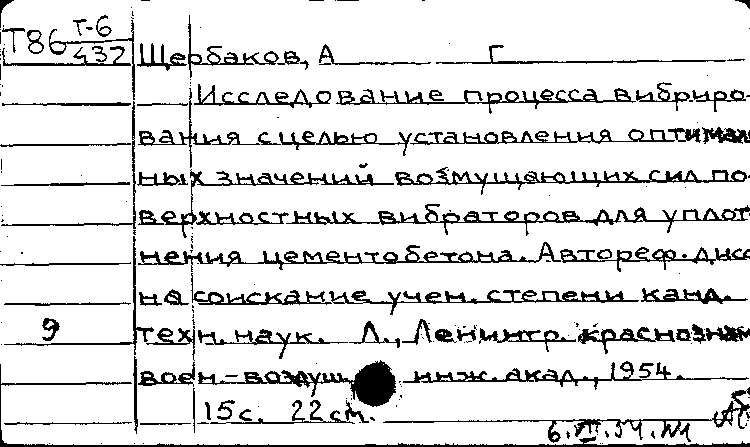 Т86 Т-6
432
Щербаков, А Г
Исследование процесса вибриро-
вания с целью установления оптималь
ных значений возмущающих сил по-
верхностных вибраторов для уплот
нения цементобетона. Автореф. дисс
на соискание учен. степени канд.
9 техн. наук. Л., Ленингр. краснознам
воен.-воздуш. инж. акад., 1954.
15с. 22см.
6.VII.54. №1